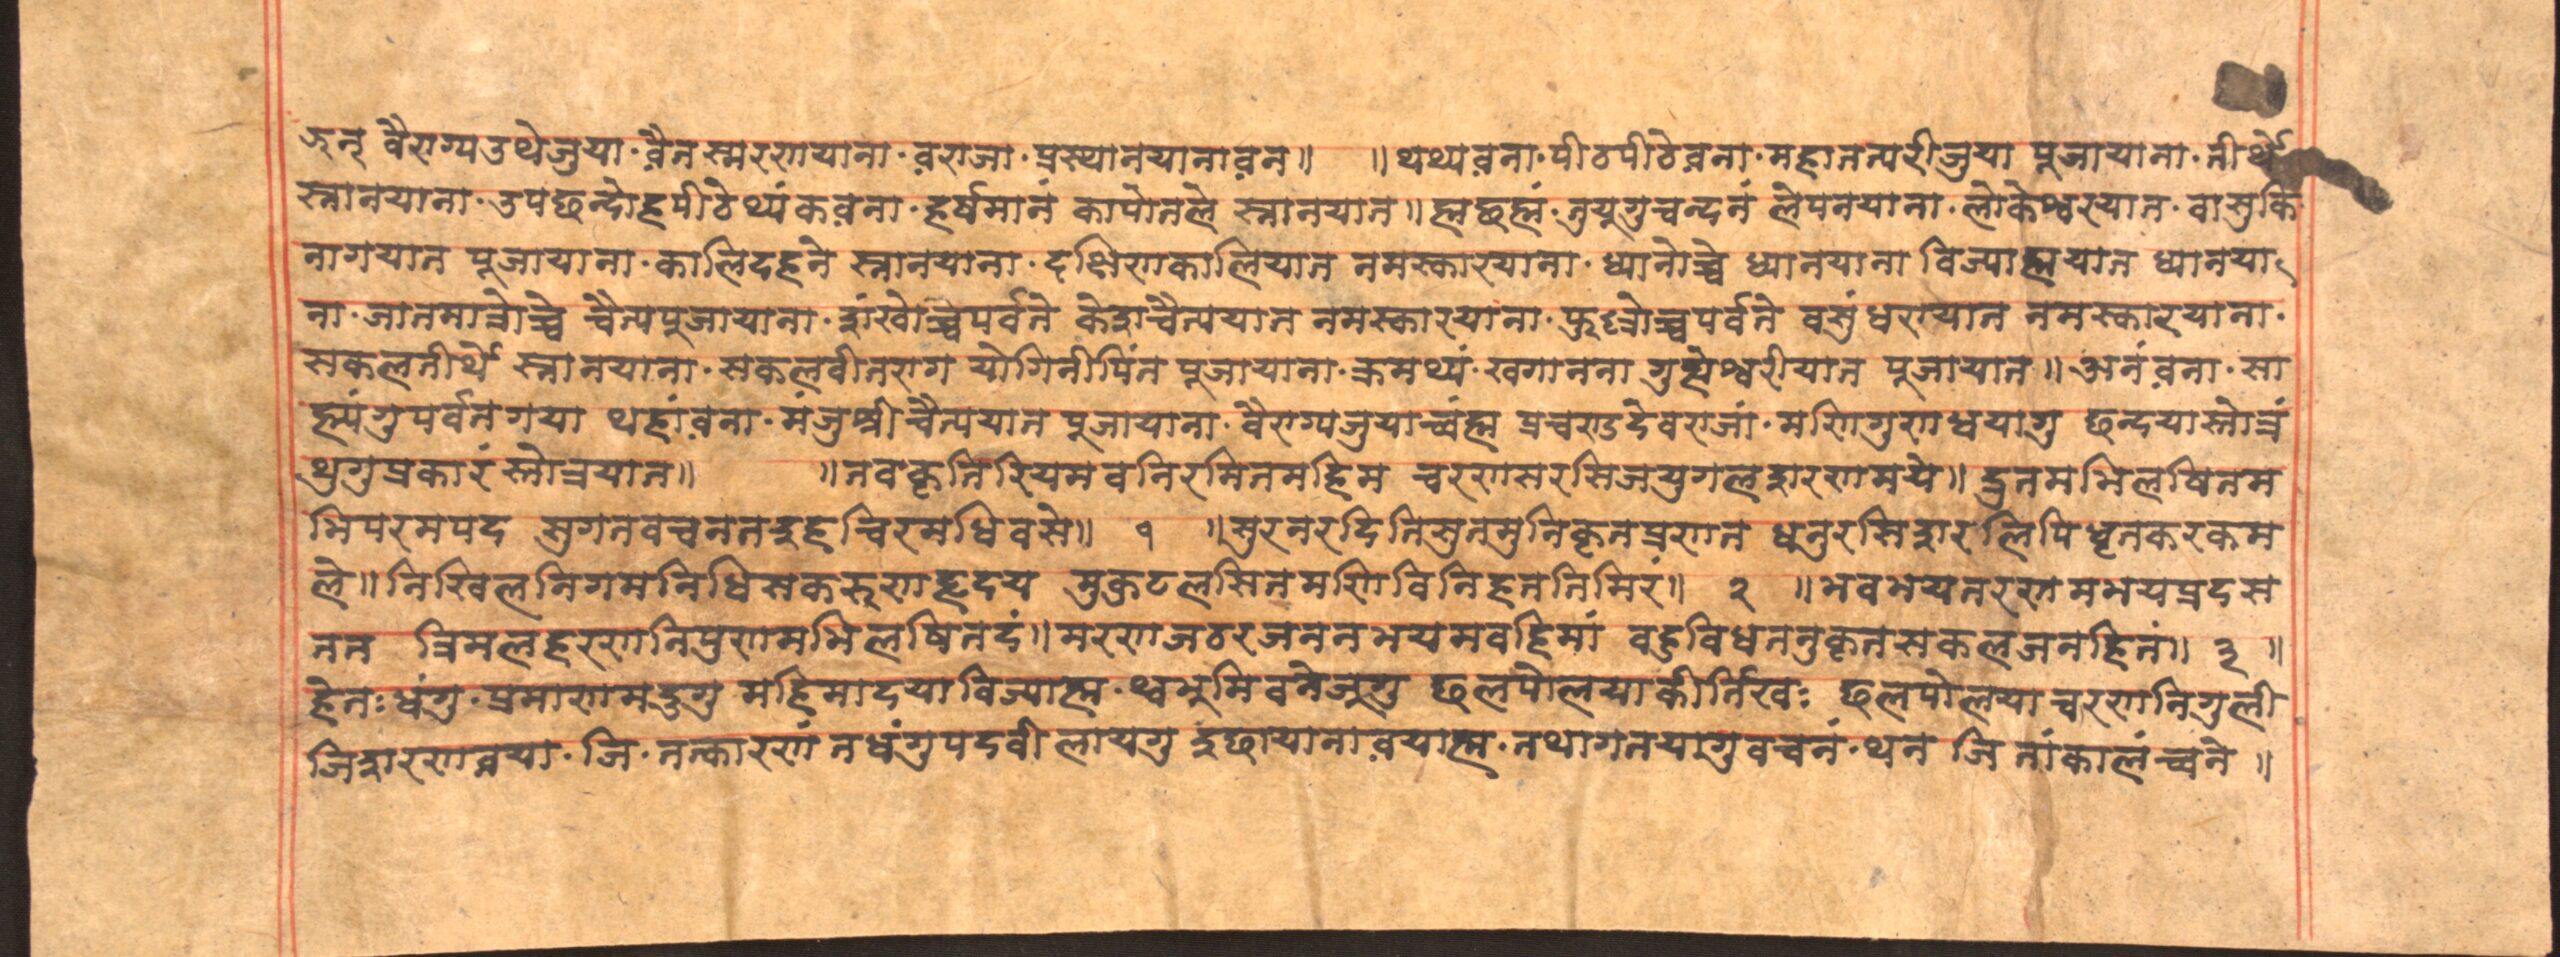 जुन् वैराग्यउथेजुया॰व़ैनस्मरणयाना॰व़राजा॰प्रस्थानयानाव़न॥ ॥थथ्यव़ना॰पीठपीठेव़ना॰महातत्परीजुया पूजायाना॰तीर्थे
स्नानयाना॰उपछन्दोहपीठेथ्यंकव़ना॰हर्षमानं कापोतले स्नानयात॥ह्मछह्मं॰तुयुगुचन्दनं लेपनयाना॰लोकेश्वरयात॰वासुकि
नागयात पूजायाना॰कालिदहने स्नानयाना॰दक्षिणकालियात नमस्कारयाना॰ध्यानोच्चे ध्यानयाना विज्याह्मयात ध्यानया
ना॰जातमात्रोच्चे चैत्यपूजायाना॰शंखोच्चपर्वते केशचैत्ययात नमस्कारयाना॰फुञोच्चपर्वते वसुंधरायात नमस्कारयाना॰
सकलतीर्थे स्नानयाना॰सकलवीतराग योगिनीपिंत पूजायाना॰क्रमथ्यं॰खगानना गुह्येश्वरीयात पूजायात॥अनंव़ना॰सा
ह्म्यंगुपर्वतगया थहांव़ना॰मंजुश्रीचैत्ययात पूजायाना॰वैराग्यजुयाच्वंह्म प्रचण्डदेवराजां॰मणिगुणध्वयागु छन्दयास्तोत्रं
थुगुप्रकारं स्तोत्रयात॥ ॥नवकृतिरियमवनिरमितमहिम चरणसरसिजयुगलशरणमये॥द्रुतमभिलषितम
भिपरमपद सुगतवचनतदुहचिरमधिवसे॥ १ ॥सुरनरदितिसुतमुनिकृतप्रणत धनुरसिशरलिपिधृतकरकम
ले॥निखिलनिगमनिधिसकरुणहृदय मुकुटलसितमणिविनिहततिमिरं॥ २ ॥भवभयतरणमभयप्रदस
तत त्रिमलहरणनिपुणमभिलषितदं॥मरणजठरजननभयमवहिमां वहुविधतनुकृतसकलजनहितं॥ ३ ॥
हेनः धंगु॰प्रमाणमदुगु महिमादयाविज्याह्म॰थ्वभुमिवनेजुगु छलपोलयाकीर्तिखः छलपोलयाचरणनिगुली
जिशरणव़या॰जि॰तत्कारणं तधंगुपदवी लायगु इंछायानाव़याह्म॰तथागतयागुवचनं॰थन जि तांकालंच्वने ॥